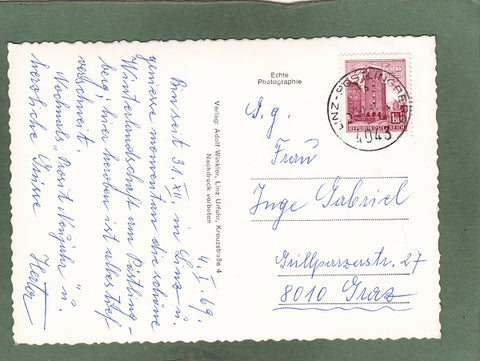 4.I.69.
Bin seit 31.XII. in Linz u.
geniesse momentan die schöne
Winterlandschaft am Pöstling-
berg; hier heroben ist alles tief
verschneit.
Nochmals "Prosit Neujahr" u.
herzliche Grüsse
Verlag: Adolf Winkler, Linz Urfahr, Kreuzstraße 4
Nachdruck verboten
Echte
Photographie
REPUBLIK ÖSTERREICH
4043
Frau
Inge Gabriel
Grillparzerstr. 27
8010 Graz